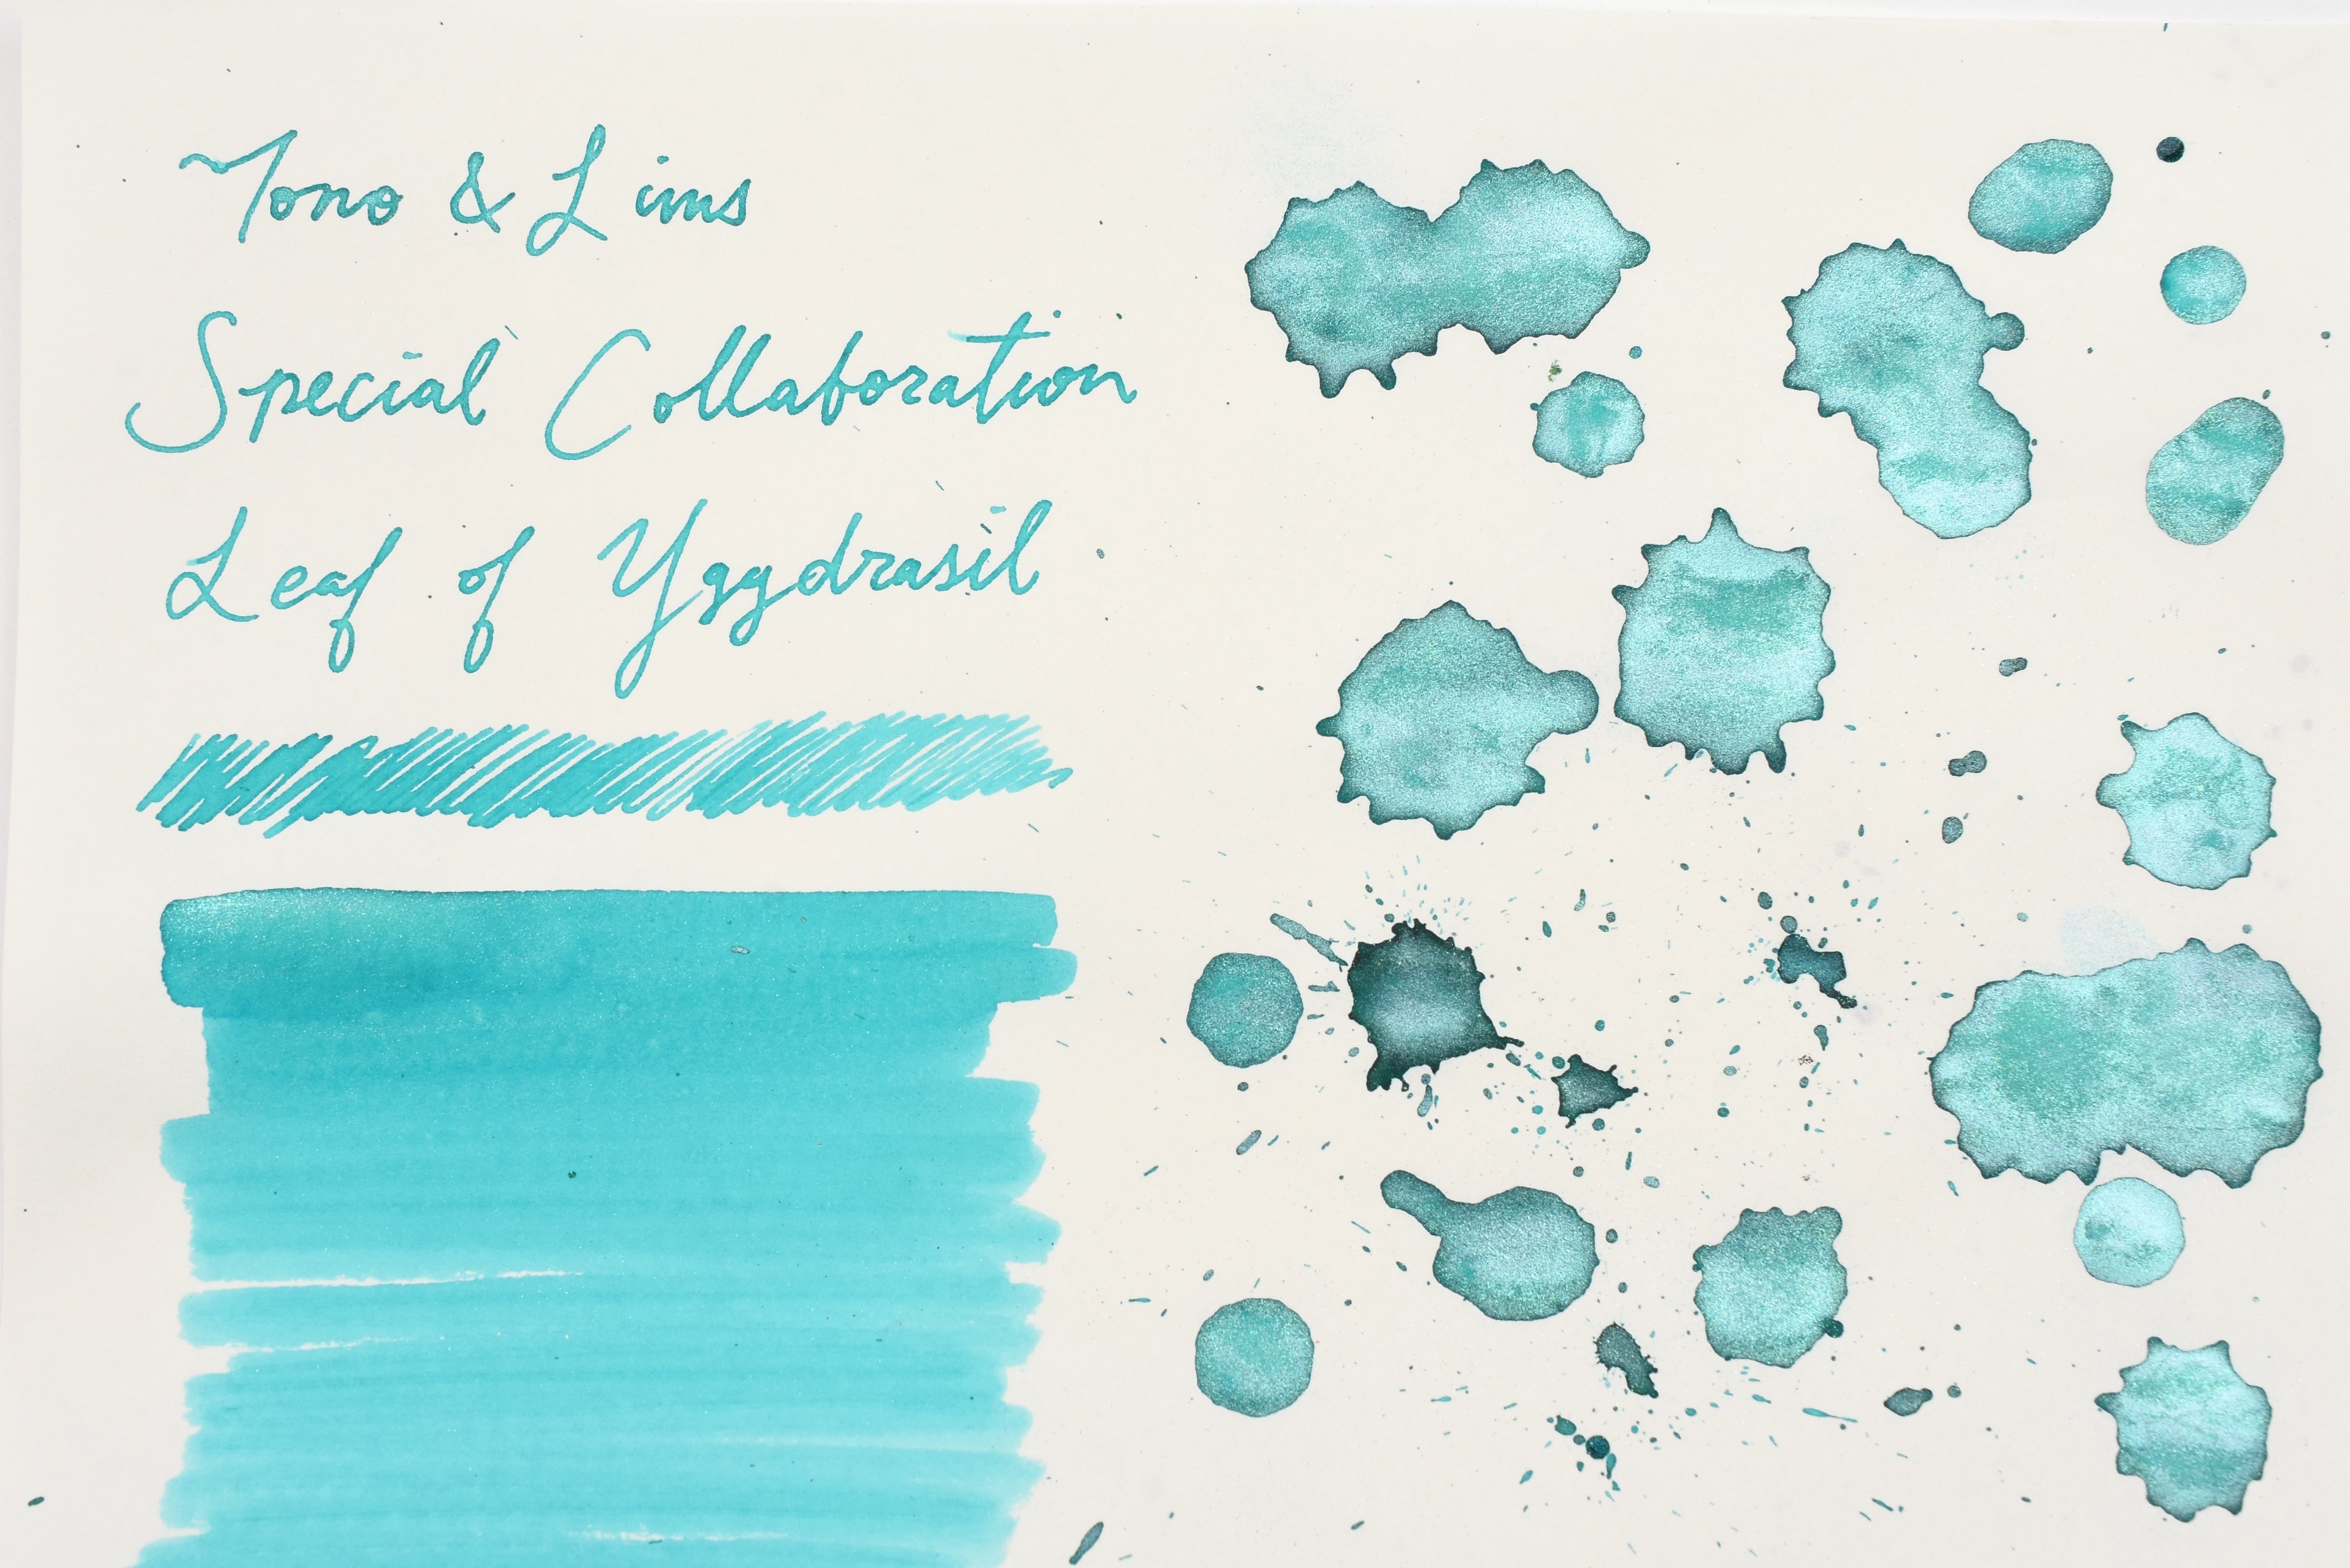 Tono & Lims
Special Collaboration
Leaf of Yggdrasil